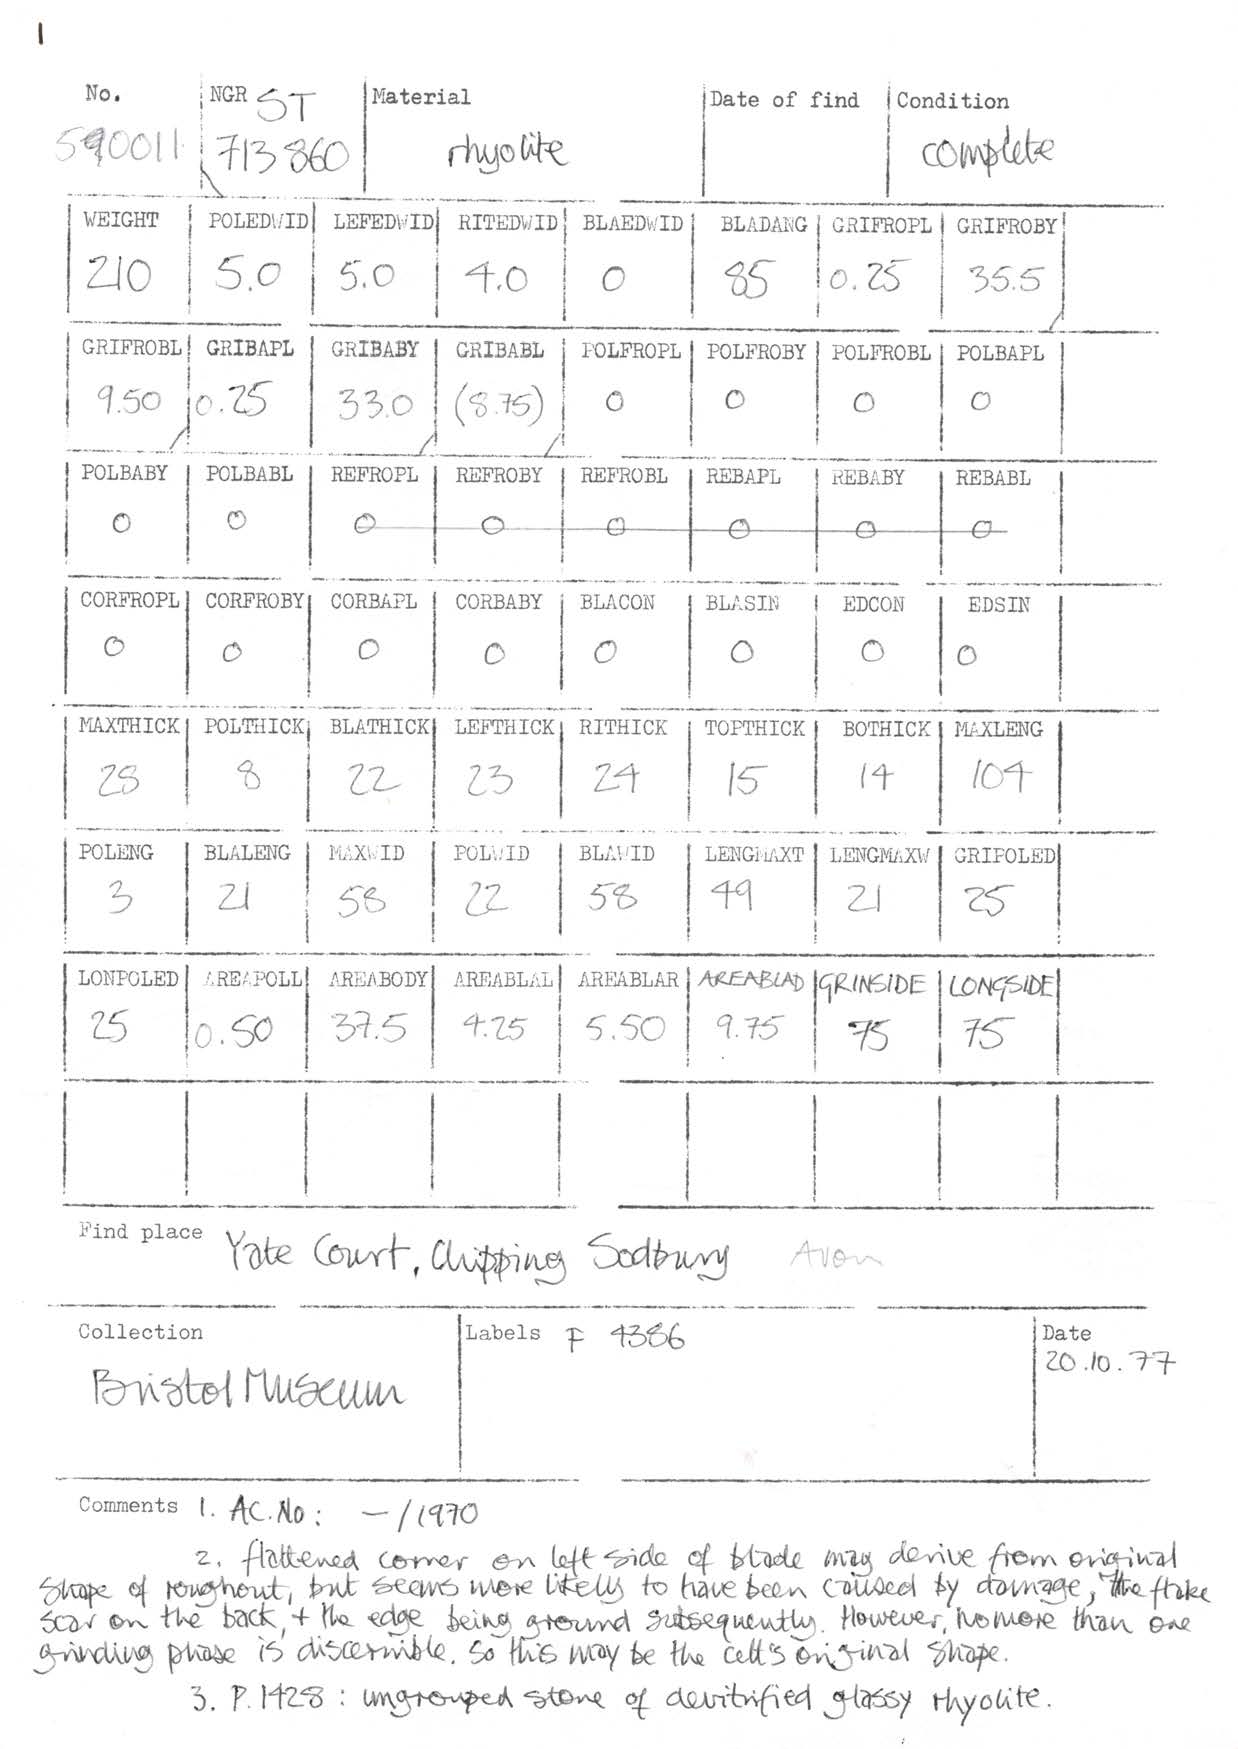 1
No. NGR ST Material Date of find Condition
590011 713860 rhyolite complete
WEIGHT POLEDWID LEFEDWID RITEDWID BLAEDWID BLADANG GRIFROPL GRIFROBY
210 5.0 5.0 4.0 0 85 0.25 35.5
GRIFROBL GRIBAPL GRIBABY GRIBABL POLFROPL POLFROBY POLFROBL POLBAPL
9.50 0.25 33.0 (8.75) 0 0 0 0
POLBABY POLBABL REFROPL REFROBY REFROBL REBAPL REBABY REBABL
0 0 0 0 0 0 0 0
CORFROPL CORFROBY CORBAPL CORBABY BLACON BLASIN EDCON EDSIN
0 0 0 0 0 0 0 0
MAXTHICK POLTHICK BLATHICK LEFTHICK RITHICK TOPTHICK BOTHICK MAXLENG
28 8 22 23 24 15 14 104
POLENG BLALENG MAXWID POLWID BLAWID LENGMAXT LENGMAXW GRIPOLED
3 21 58 22 58 49 21 25
LONPOLED AREAPOLL AREABODY AREABLAL AREABLAR AREABLAD GRINSIDE LONGSIDE
25 0.50 37.5 4.25 5.50 9.75 75 75
Find place Yate Court, Chipping Sodbury Avon
Collection Labels F 4386 Date
20.10.77
Bristol Museum
Comments 1. AC.No: -/1970
2. flattened corner on left side of blade may derive from original
shape of roughout, but seems more likely to have been caused by damage, the flake
scar on the back, + the edge being ground subsequently. However, no more than one
grinding phase is discernible. So this may be the celt's original shape.
3. P.1428 : ungrouped stone of devitrified glassy rhyolite.